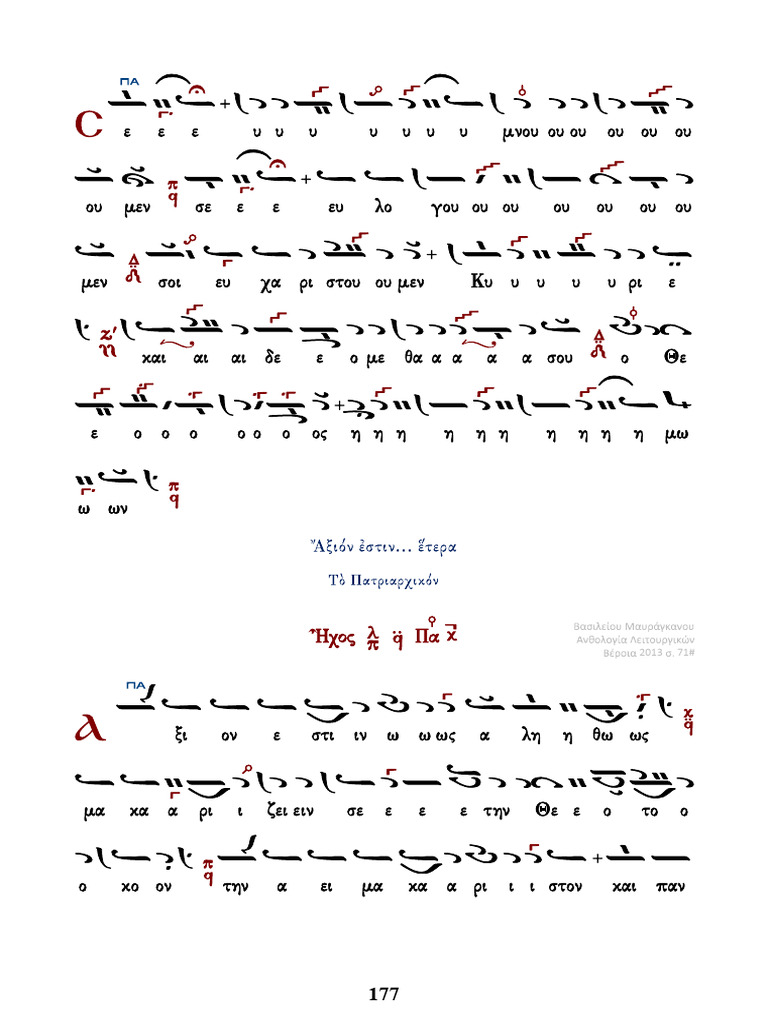 ΠΑ
Σ ε ε ε υ υ υ υ υ υ υ μνου ου ου ου ου ου
ου μεν π q σε ε ε ευ λο γου ου ου ου ου ου ου
μεν Δ σοι ευ χα ρι στου ου μεν Κυ υ υ υ υ ρι ε
ζ' και αι αι δε ε ο με θα α α α α σου Δ ο Θε
ε ο ο ο ο ο ο ος η η η η η η η η η η μω
ω ων π q
Ἄξιόν ἐστιν... ἕτερα
Τὸ Πατριαρχικόν
Ἦχος λ π q Πα
Βασιλείου Μαυράγκανου
Ανθολογία Λειτουργικών
Βέροια 2013 σ. 71#
ΠΑ
Α ξι ον ε στι ιν ω ω ως α λη η θω ως κ q
μα κα α ρι ι ζει ειν σε ε ε ε την Θε ε ο το ο
ο κο ον π q την α ει μα κα α ρι ι ι στον και παν
177